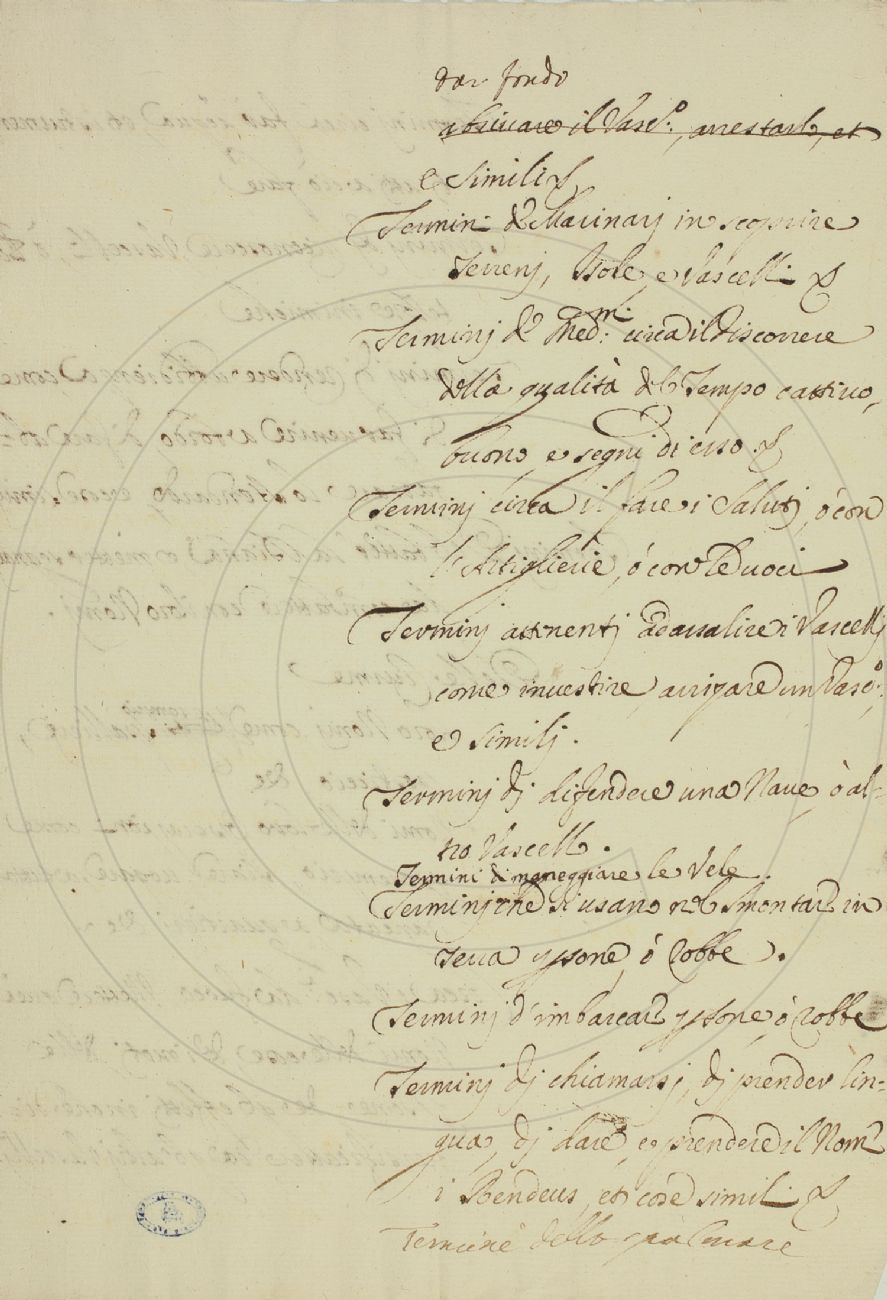 dar fondo
abbrivare il Vasc.º, arrestarlo, et
e simili
Termini de Marinarj in scoprire
Terrenj, Isole, e Vascelli
Terminj de Med.mi circa il discorrere
della qualità del Tempo cattivo,
buono, e segni di esso.
Terminj circa il fare i Salutj, ò con
l'Artiglierie, ó con le voci
Terminj attinentj ad assalire i Vascellj
come investire, arripare un Vasc.º,
e similj.
Terminj dj difendere una Nave, ò al-
tro Vascello.
Termini di maneggiare le Vele.
Terminj che si usano nel smontare in
Terra persone, ó robbe.
Terminj d'imbarcare persone, ò robbe
Terminj dj chiamarsj, dj prender lin-
gua, dj dare, e prendere il Nome
i Rendevus, et cose simili
Termine dello